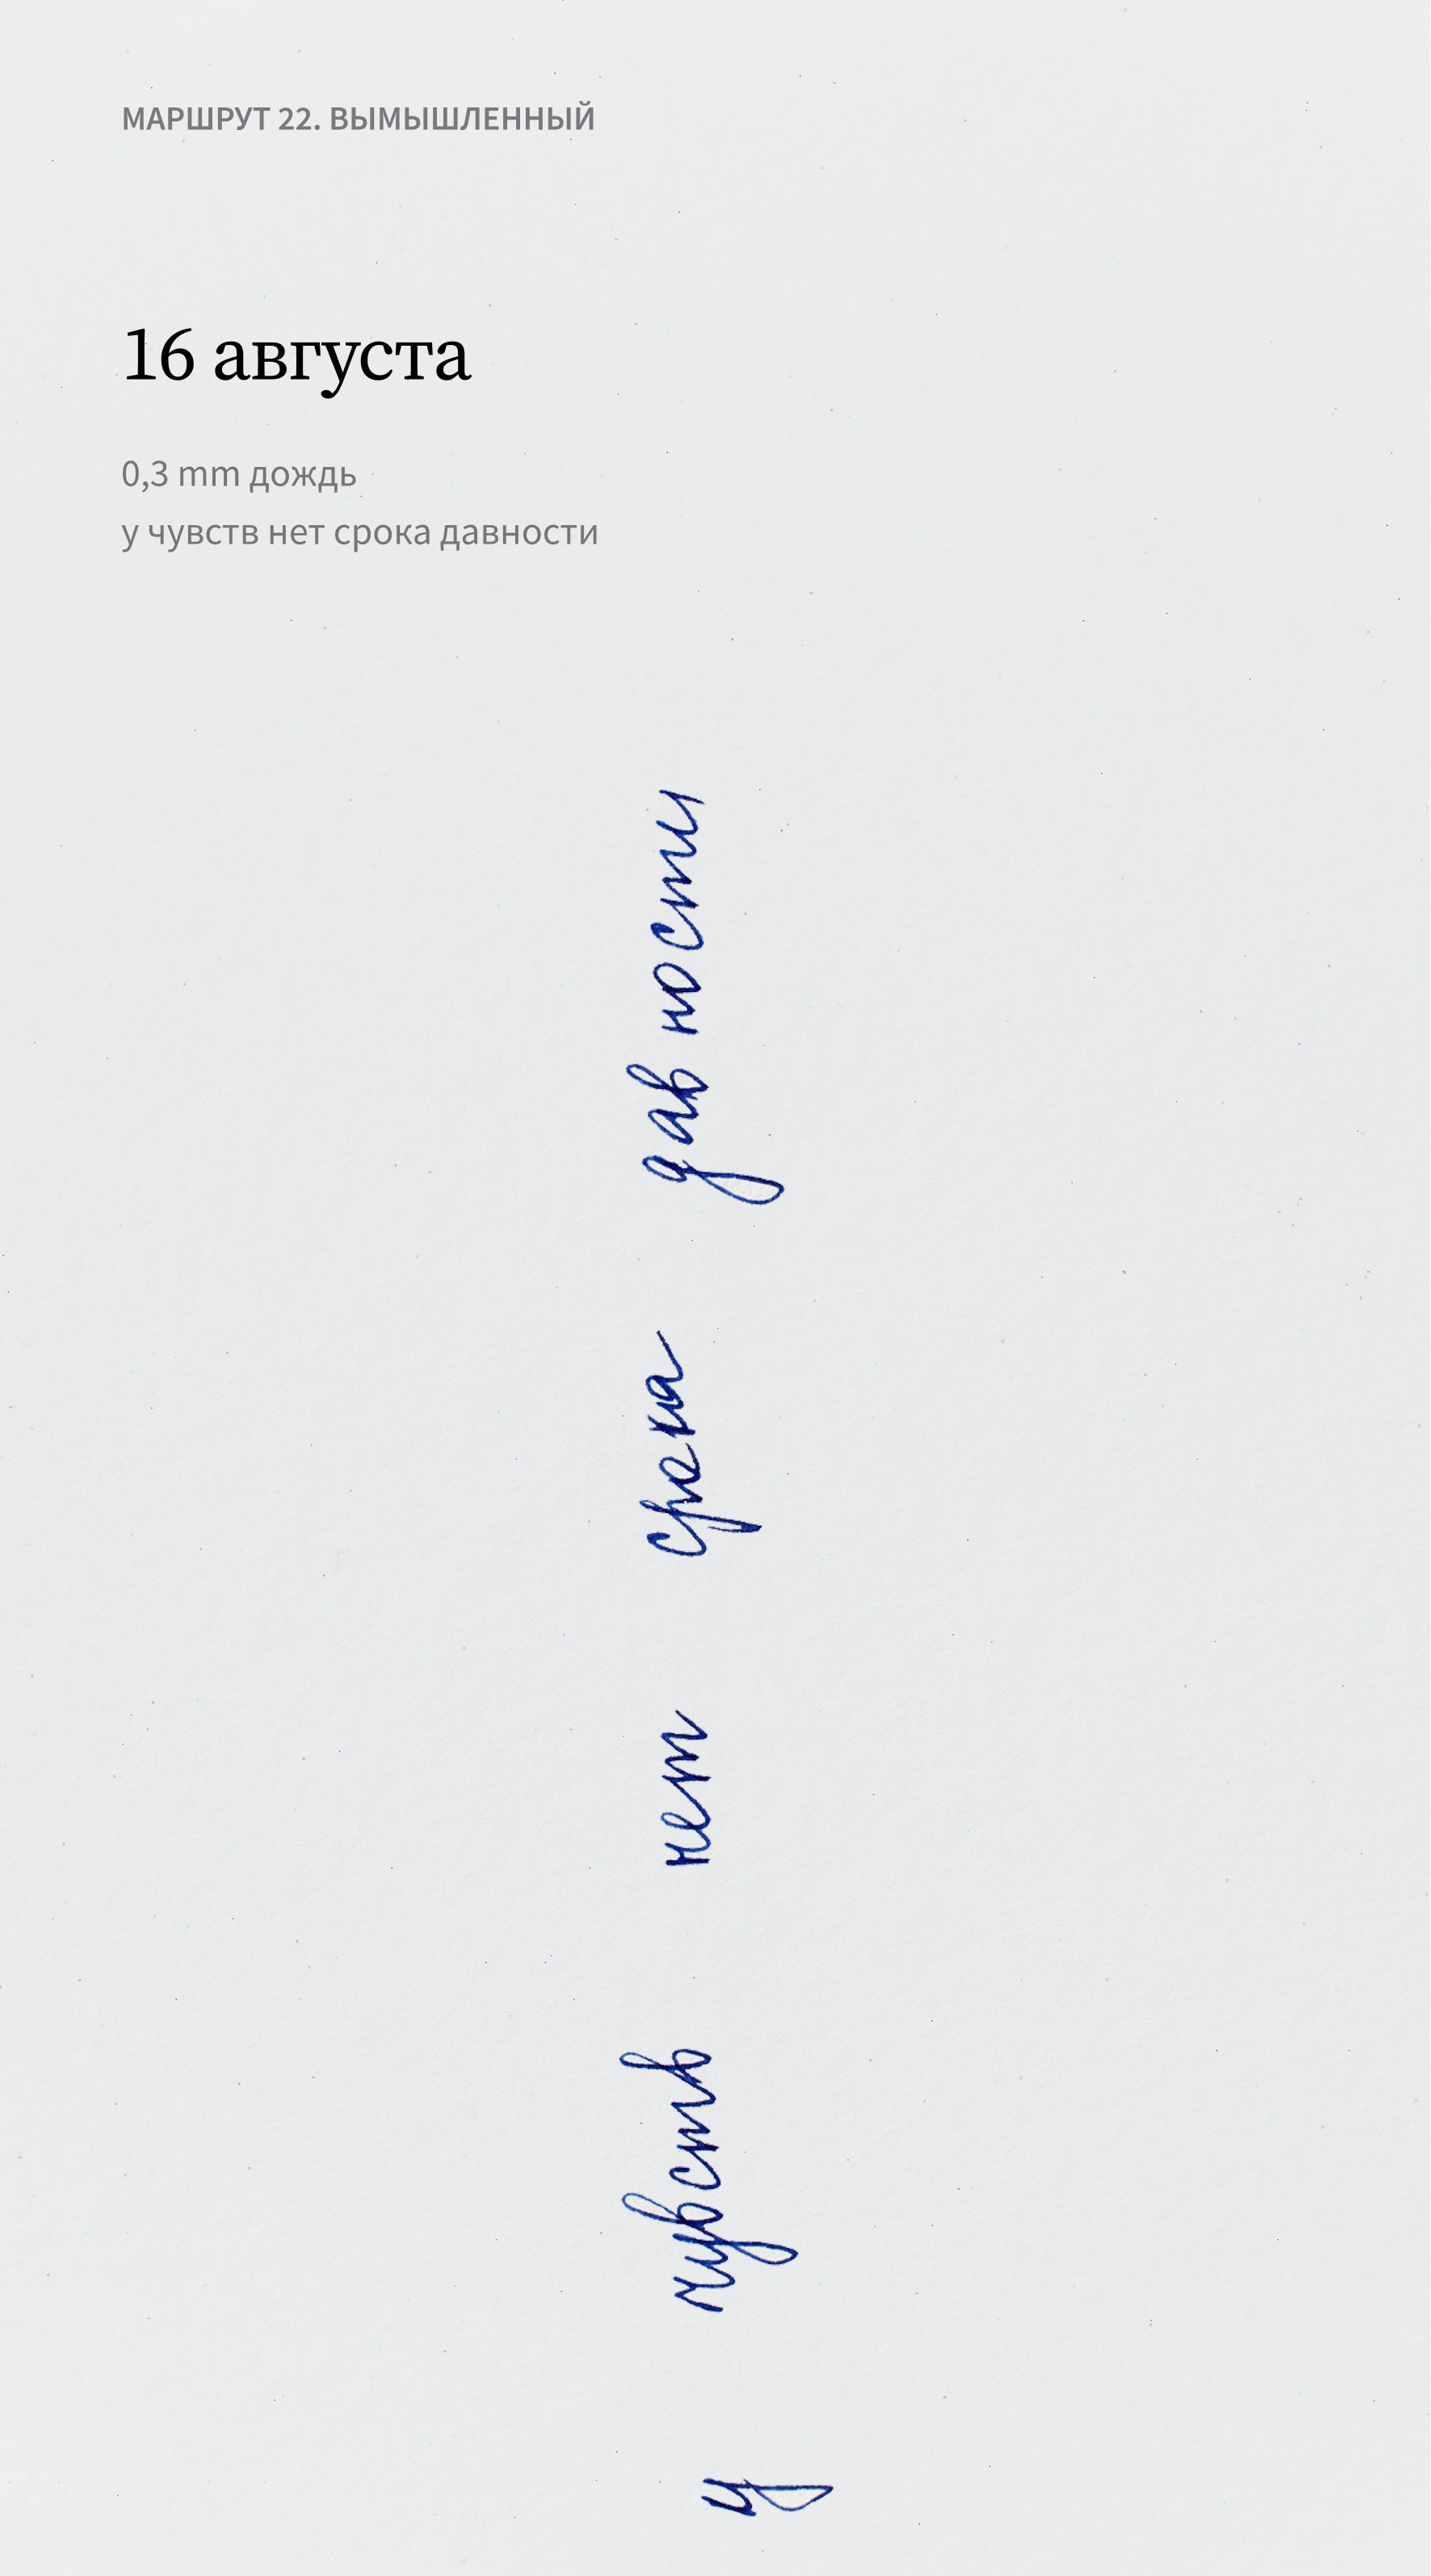 МАРШРУТ 22. ВЫМЫШЛЕННЫЙ
16 августа
0,3 mm дождь
у чувств нет срока давности
у чувств нет срока давности